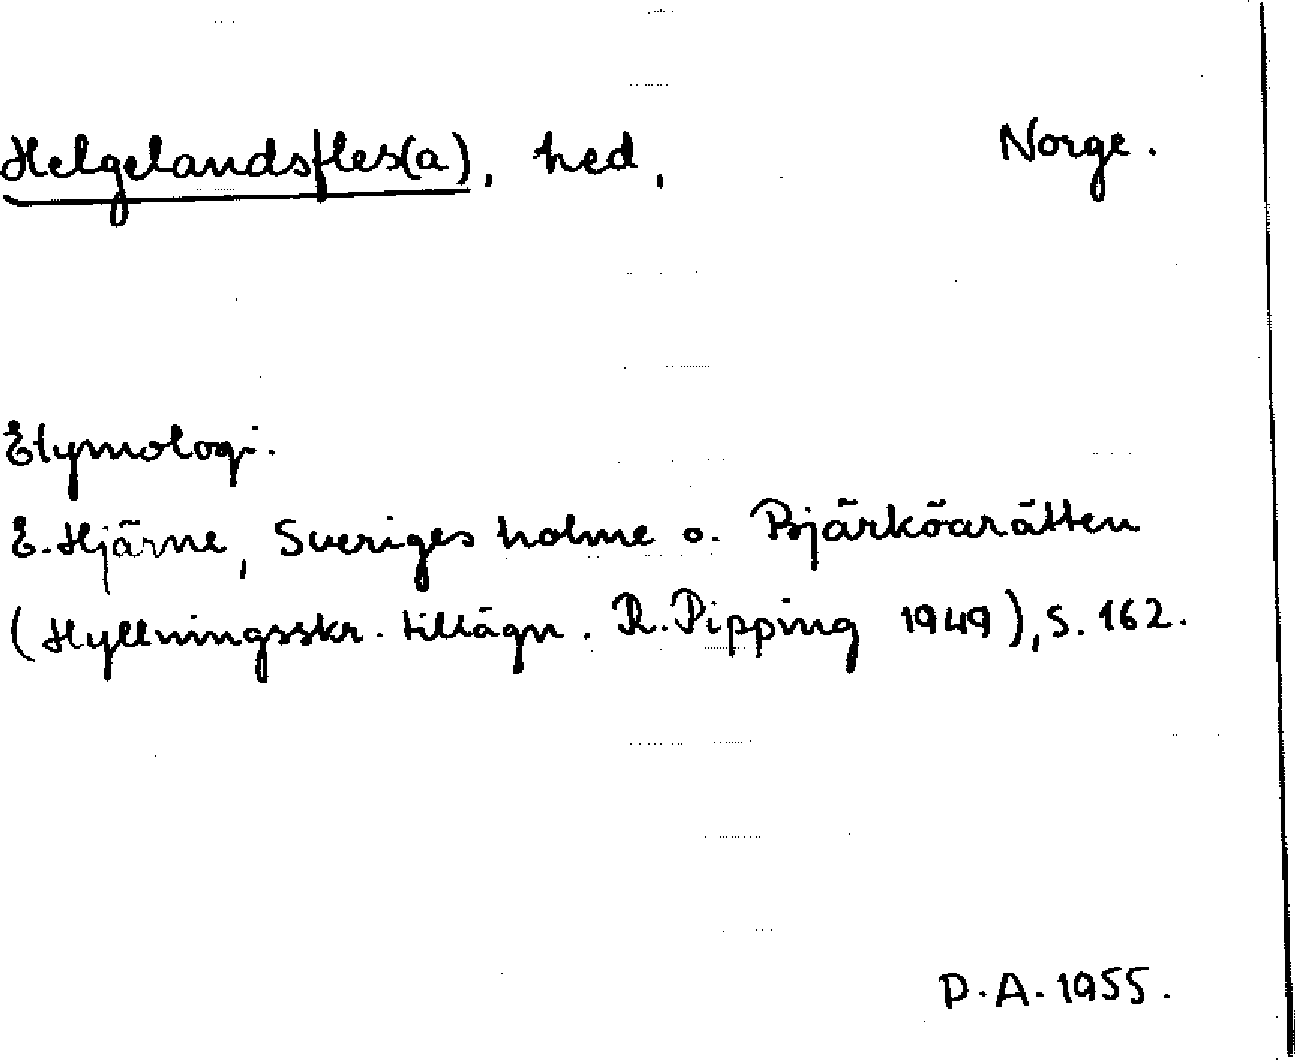 Helgelandsfles(a), hed, Norge.
Etymologi.
E. Hjärne, Sveriges holme o. Bjärköarätten
(Hyllningsskr. tillägn. R. Pipping 1949), s. 162.
D.A. 1955.